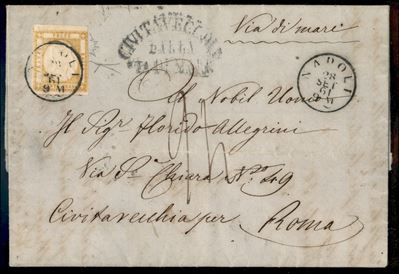 CIVITAVECCHIA
DALLA
VIA DI MARE
Via di mare
NAPOLI
28
SET
61
9 M
Al Nobil Uomo
Il Sigr Florido Allegrini
Via Sa Chiara No 49
Civitavecchia per Roma